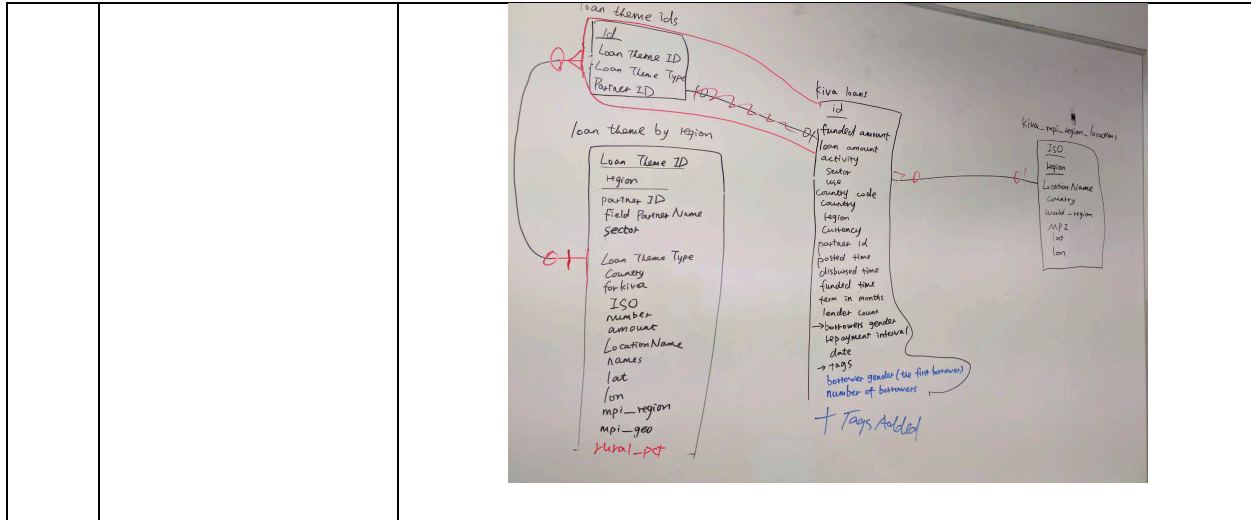 loan theme ids
id
Loan Theme ID
Loan Theme Type
Partner ID
loan theme by region
Loan Theme ID
region
partner ID
field Partner Name
sector
Loan Theme Type
Country
forkiva
ISO
number
amount
LocationName
names
lat
lon
mpi_region
mpi_geo
rural_pct
kiva loans
id
funded amount
loan amount
activity
Sector
use
country code
Country
region
Currency
partner id
posted time
disbursed time
funded time
term in months
lender count
→borrowers gender
repayment interval
date
→tags
borrower gender (the first borrower)
number of borrowers
+ Tags Added
kiva_mpi_region_locations
ISO
region
LocationName
Country
world_region
MPI
lat
lon